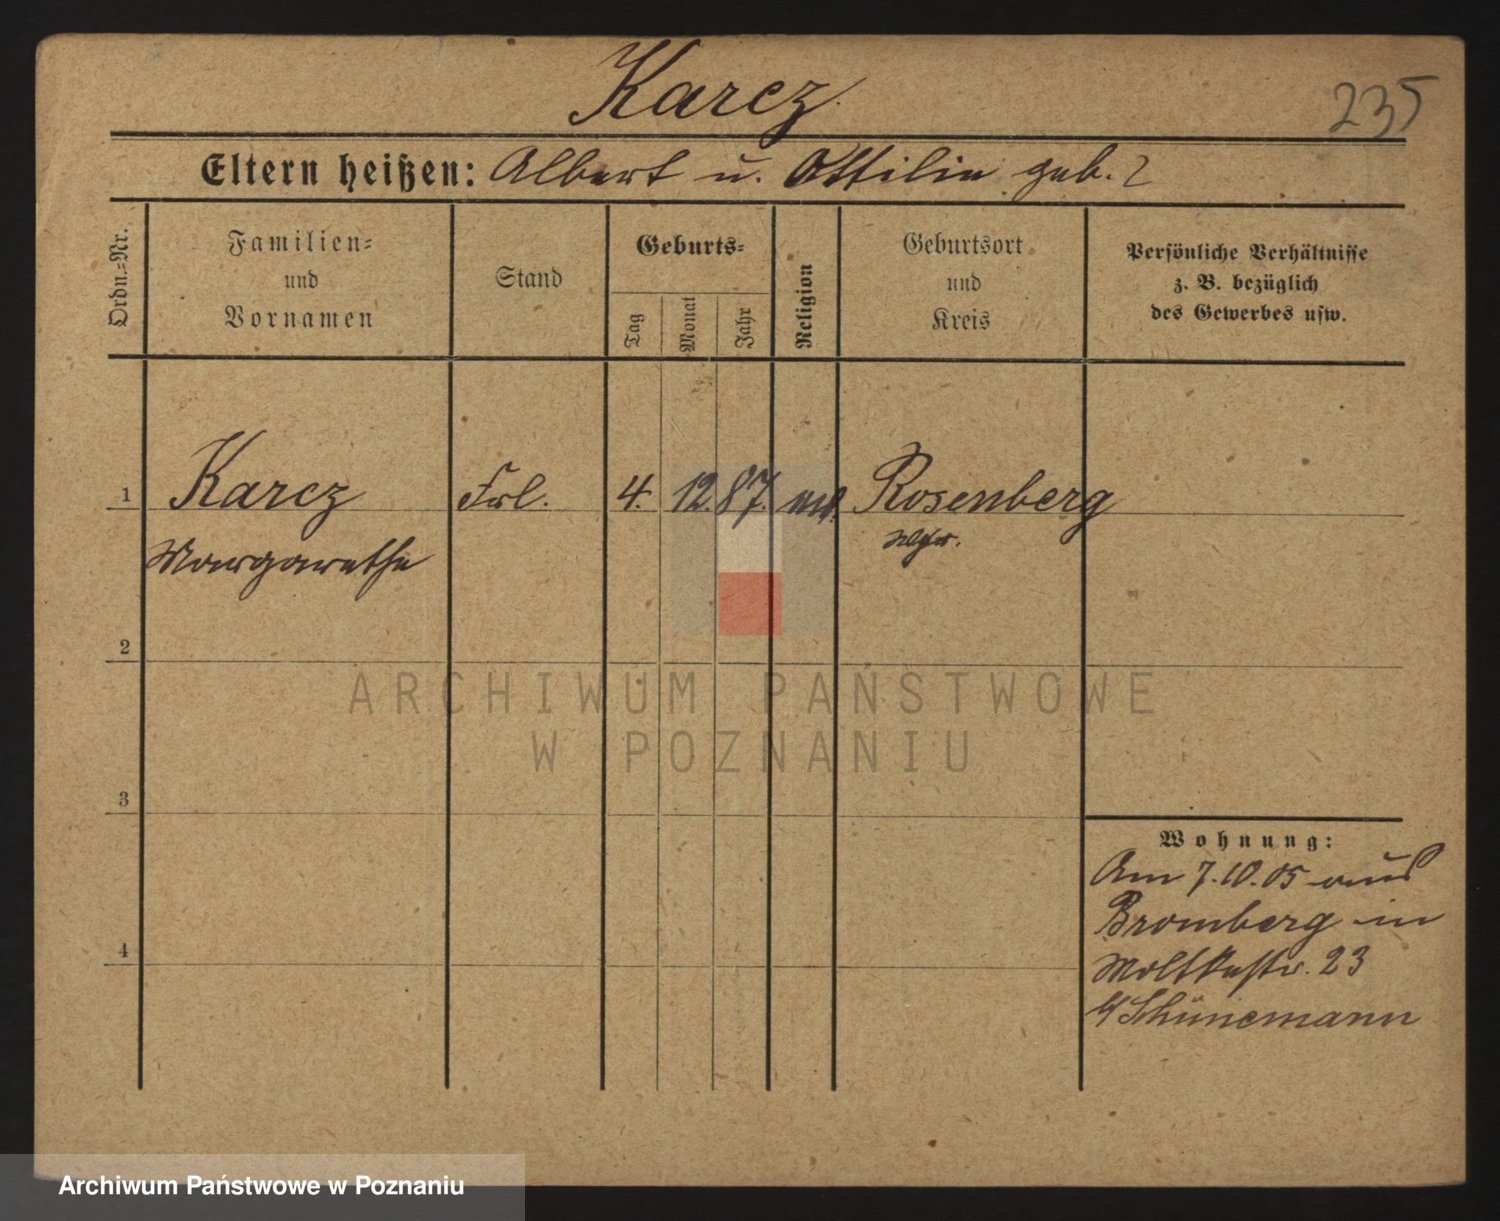 Karcz
235
Eltern heißen: Albert u. Ottilie geb. ?
Ordn.-Nr.
Familien-
und
Vornamen
Stand
Geburts-
Tag
Monat
Jahr
Religion
Geburtsort
und
Kreis
Persönliche Verhältnisse
z. B. bezüglich
des Gewerbes usw.
1
Karcz
Frl.
4. 12. 87.
Rosenberg
Margarethe
Wpr.
2
ARCHIWUM PAŃSTWOWE
W POZNANIU
3
Wohnung:
Am 7.10.05 aus
Bromberg in
Moltkestr. 23
b/Schünemann
4
Archiwum Państwowe w Poznaniu